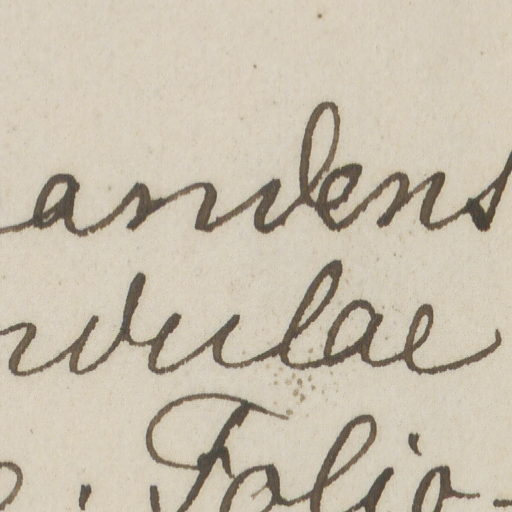 andens
dulae
. Folio-